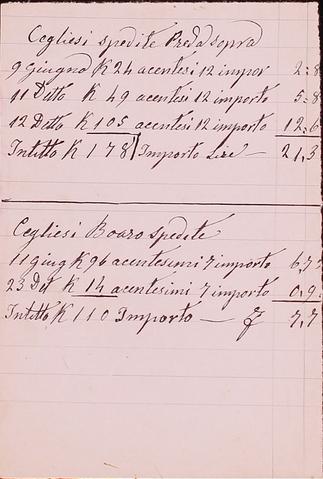 Cegliesi spedite Preda sopra
9 Giugno K 24 acentesi 12 impor 2:8
11 Detto K 49 acentesi 12 importo 5:8
12 Detto K 105 acentesi 12 importo 12:6
Intutto K 178 Importo Lire — 21,3
Cegliesi Boaro spedite
11 giug K 96 acentesimi 7 importo 6,7
23 Det K 14 acentesimi 7 importo 0,9
Intutto K 110 Importo — 7,7